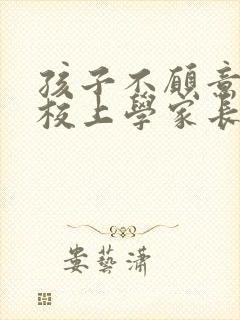 孩子不願意
校上學家長
娄藝瀟